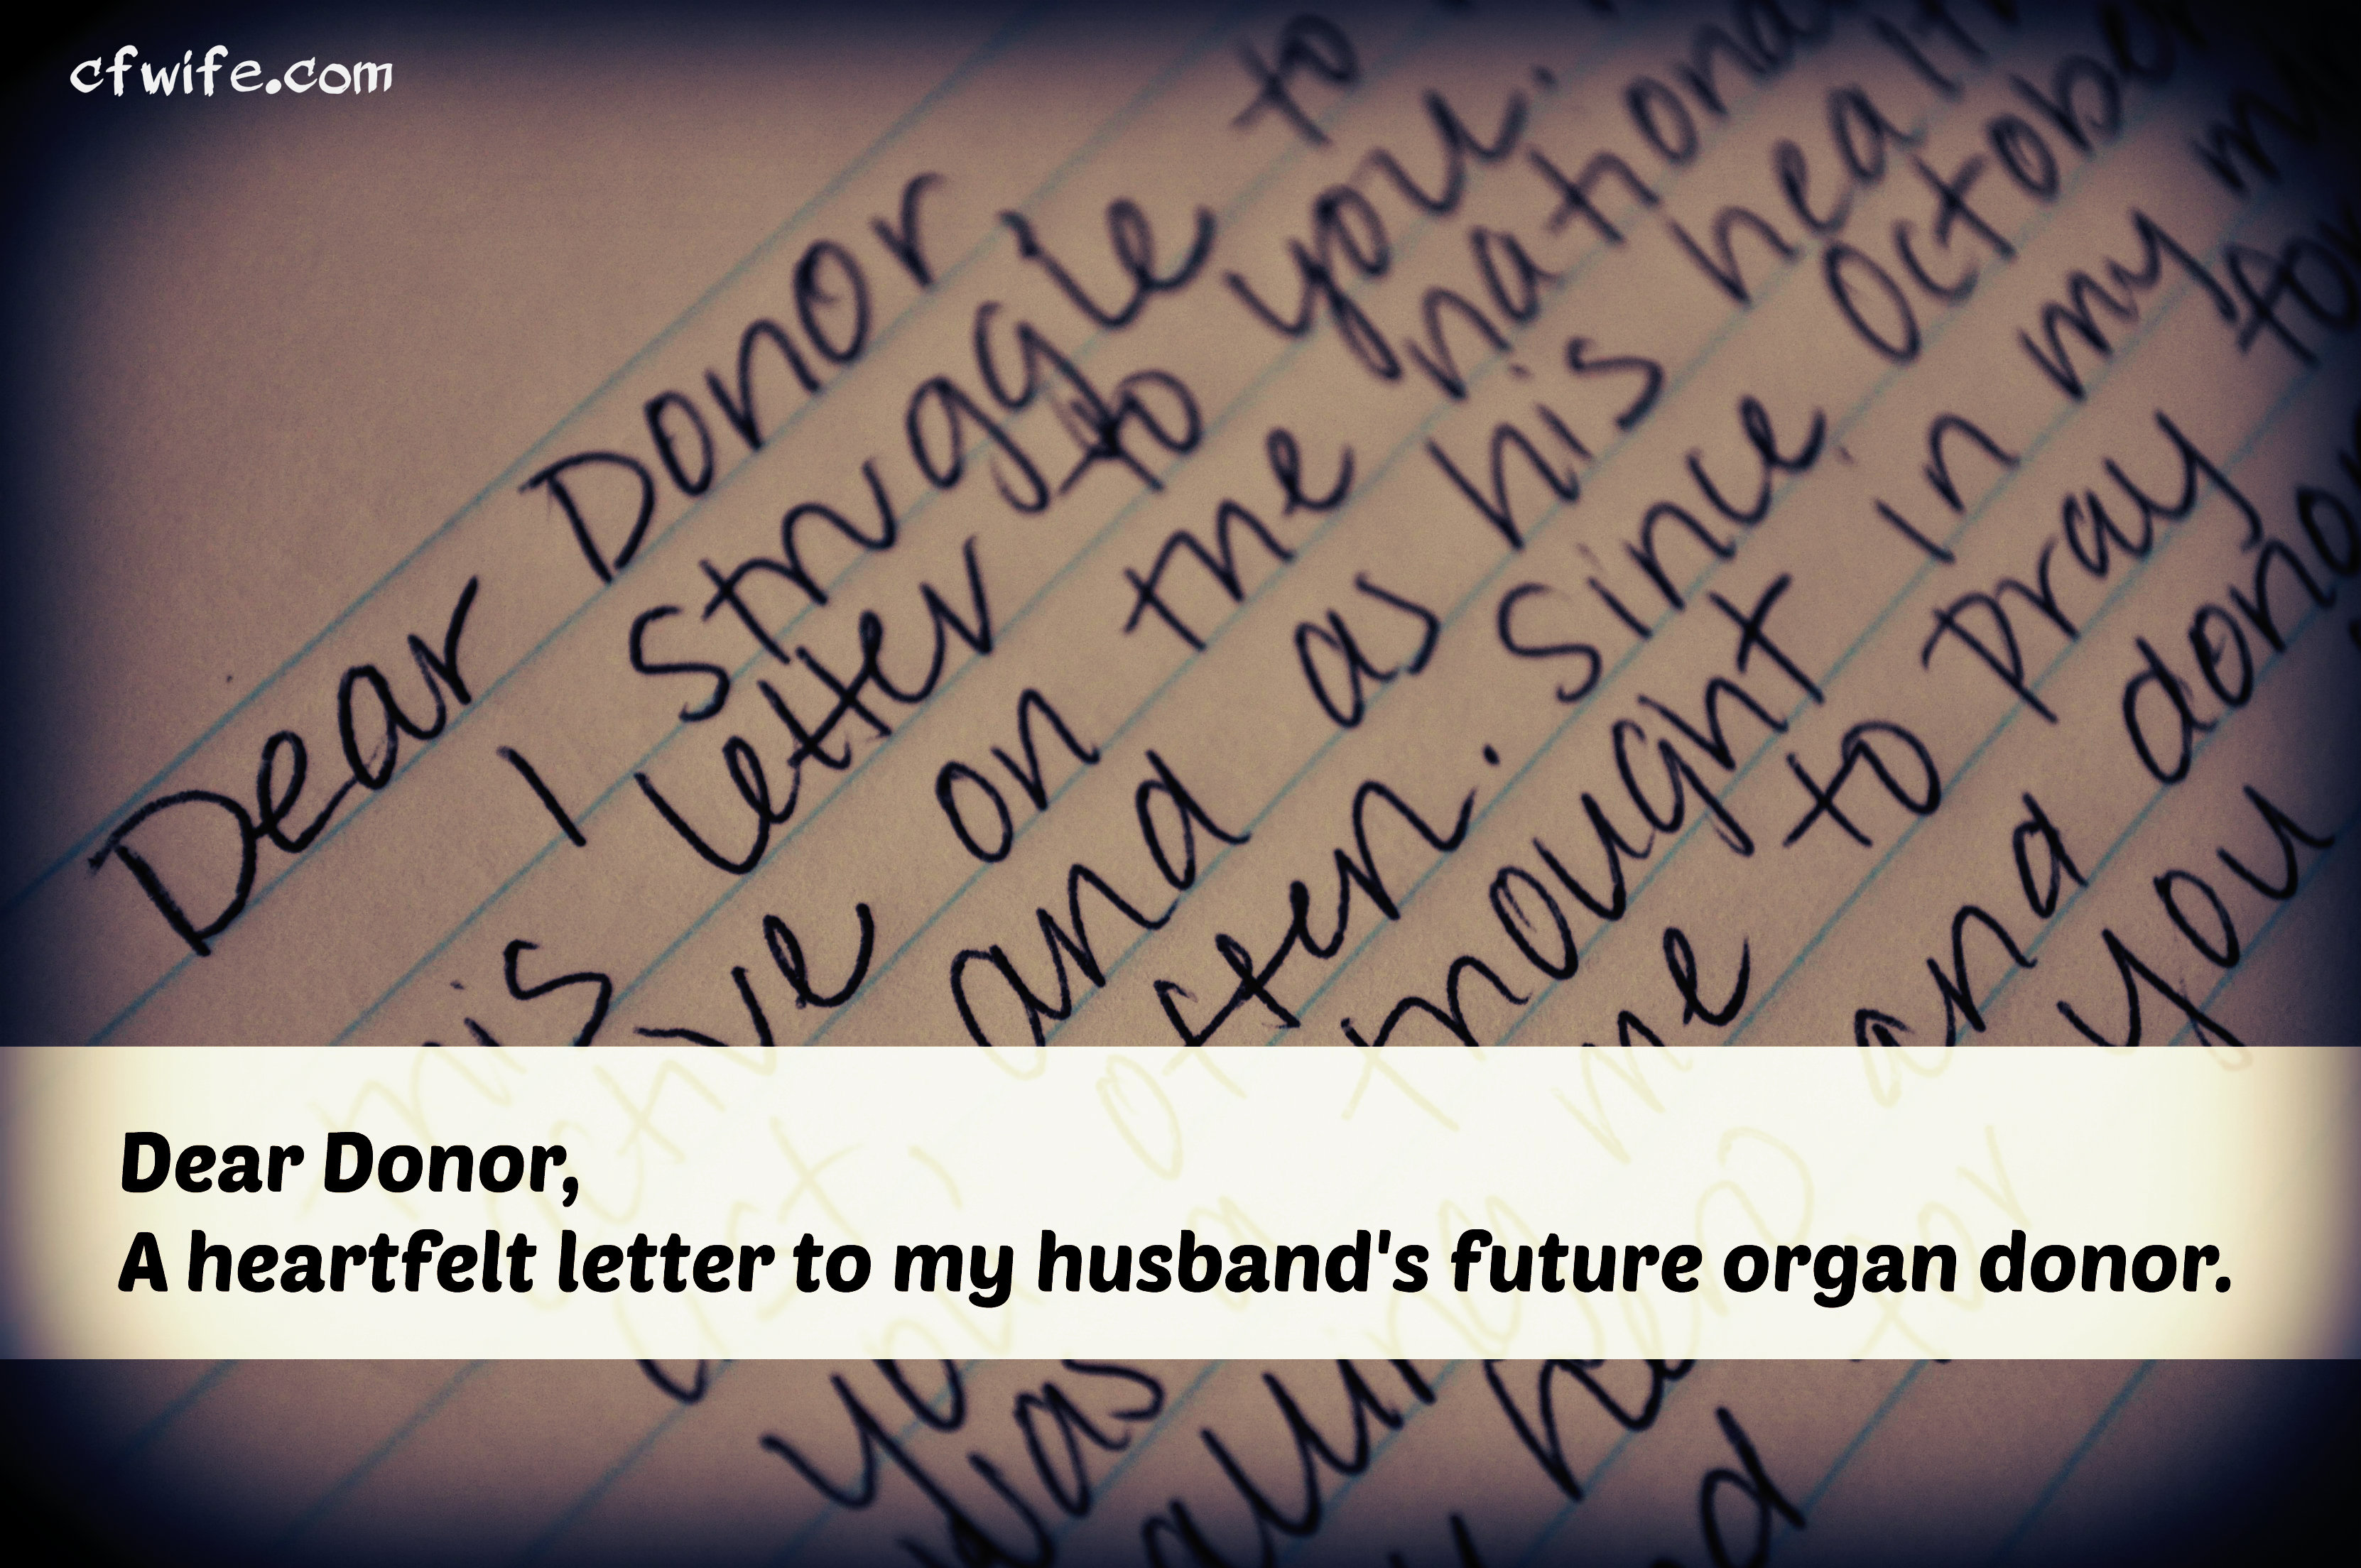 cfwife.com
Dear Donor
I struggle to
this letter to you.
active on the national
list, and as his
you often. Since October
was a thought in my
calling me to pray for
and
for you
Dear Donor,
A heartfelt letter to my husband's future organ donor.